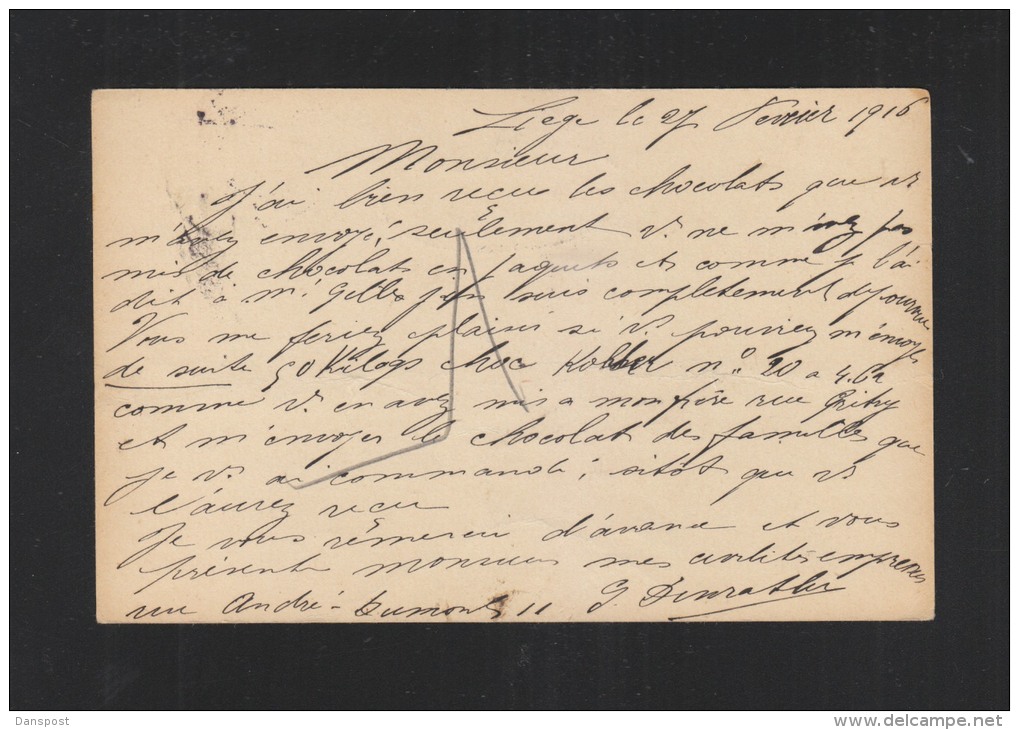 Liege le 27 Fevrier 1916
Monsieur
J'ai bien reçue les chocolats que v.
m'avez envoyé, seulement v. ne m'avez pas
mis de chocolats en paquets et comme je l'ai
dit à mr suis completement dépourvue
Vous me feriez plaisir si v. pouviez m'envoyer
de suite 50 Kilogs choc Kohler n° 20 a 4.62
comme v. en avez mis a mon frère rue Grétry
et m'envoyer le chocolat des familles que
je v. ai commandé, sitôt que v.
l'aurez reçu
Je vous remercie d'avance et vous
présente monsieur mes civilités empressées
rue André-Dumont 11 J.
Danspost
www.delcampe.net